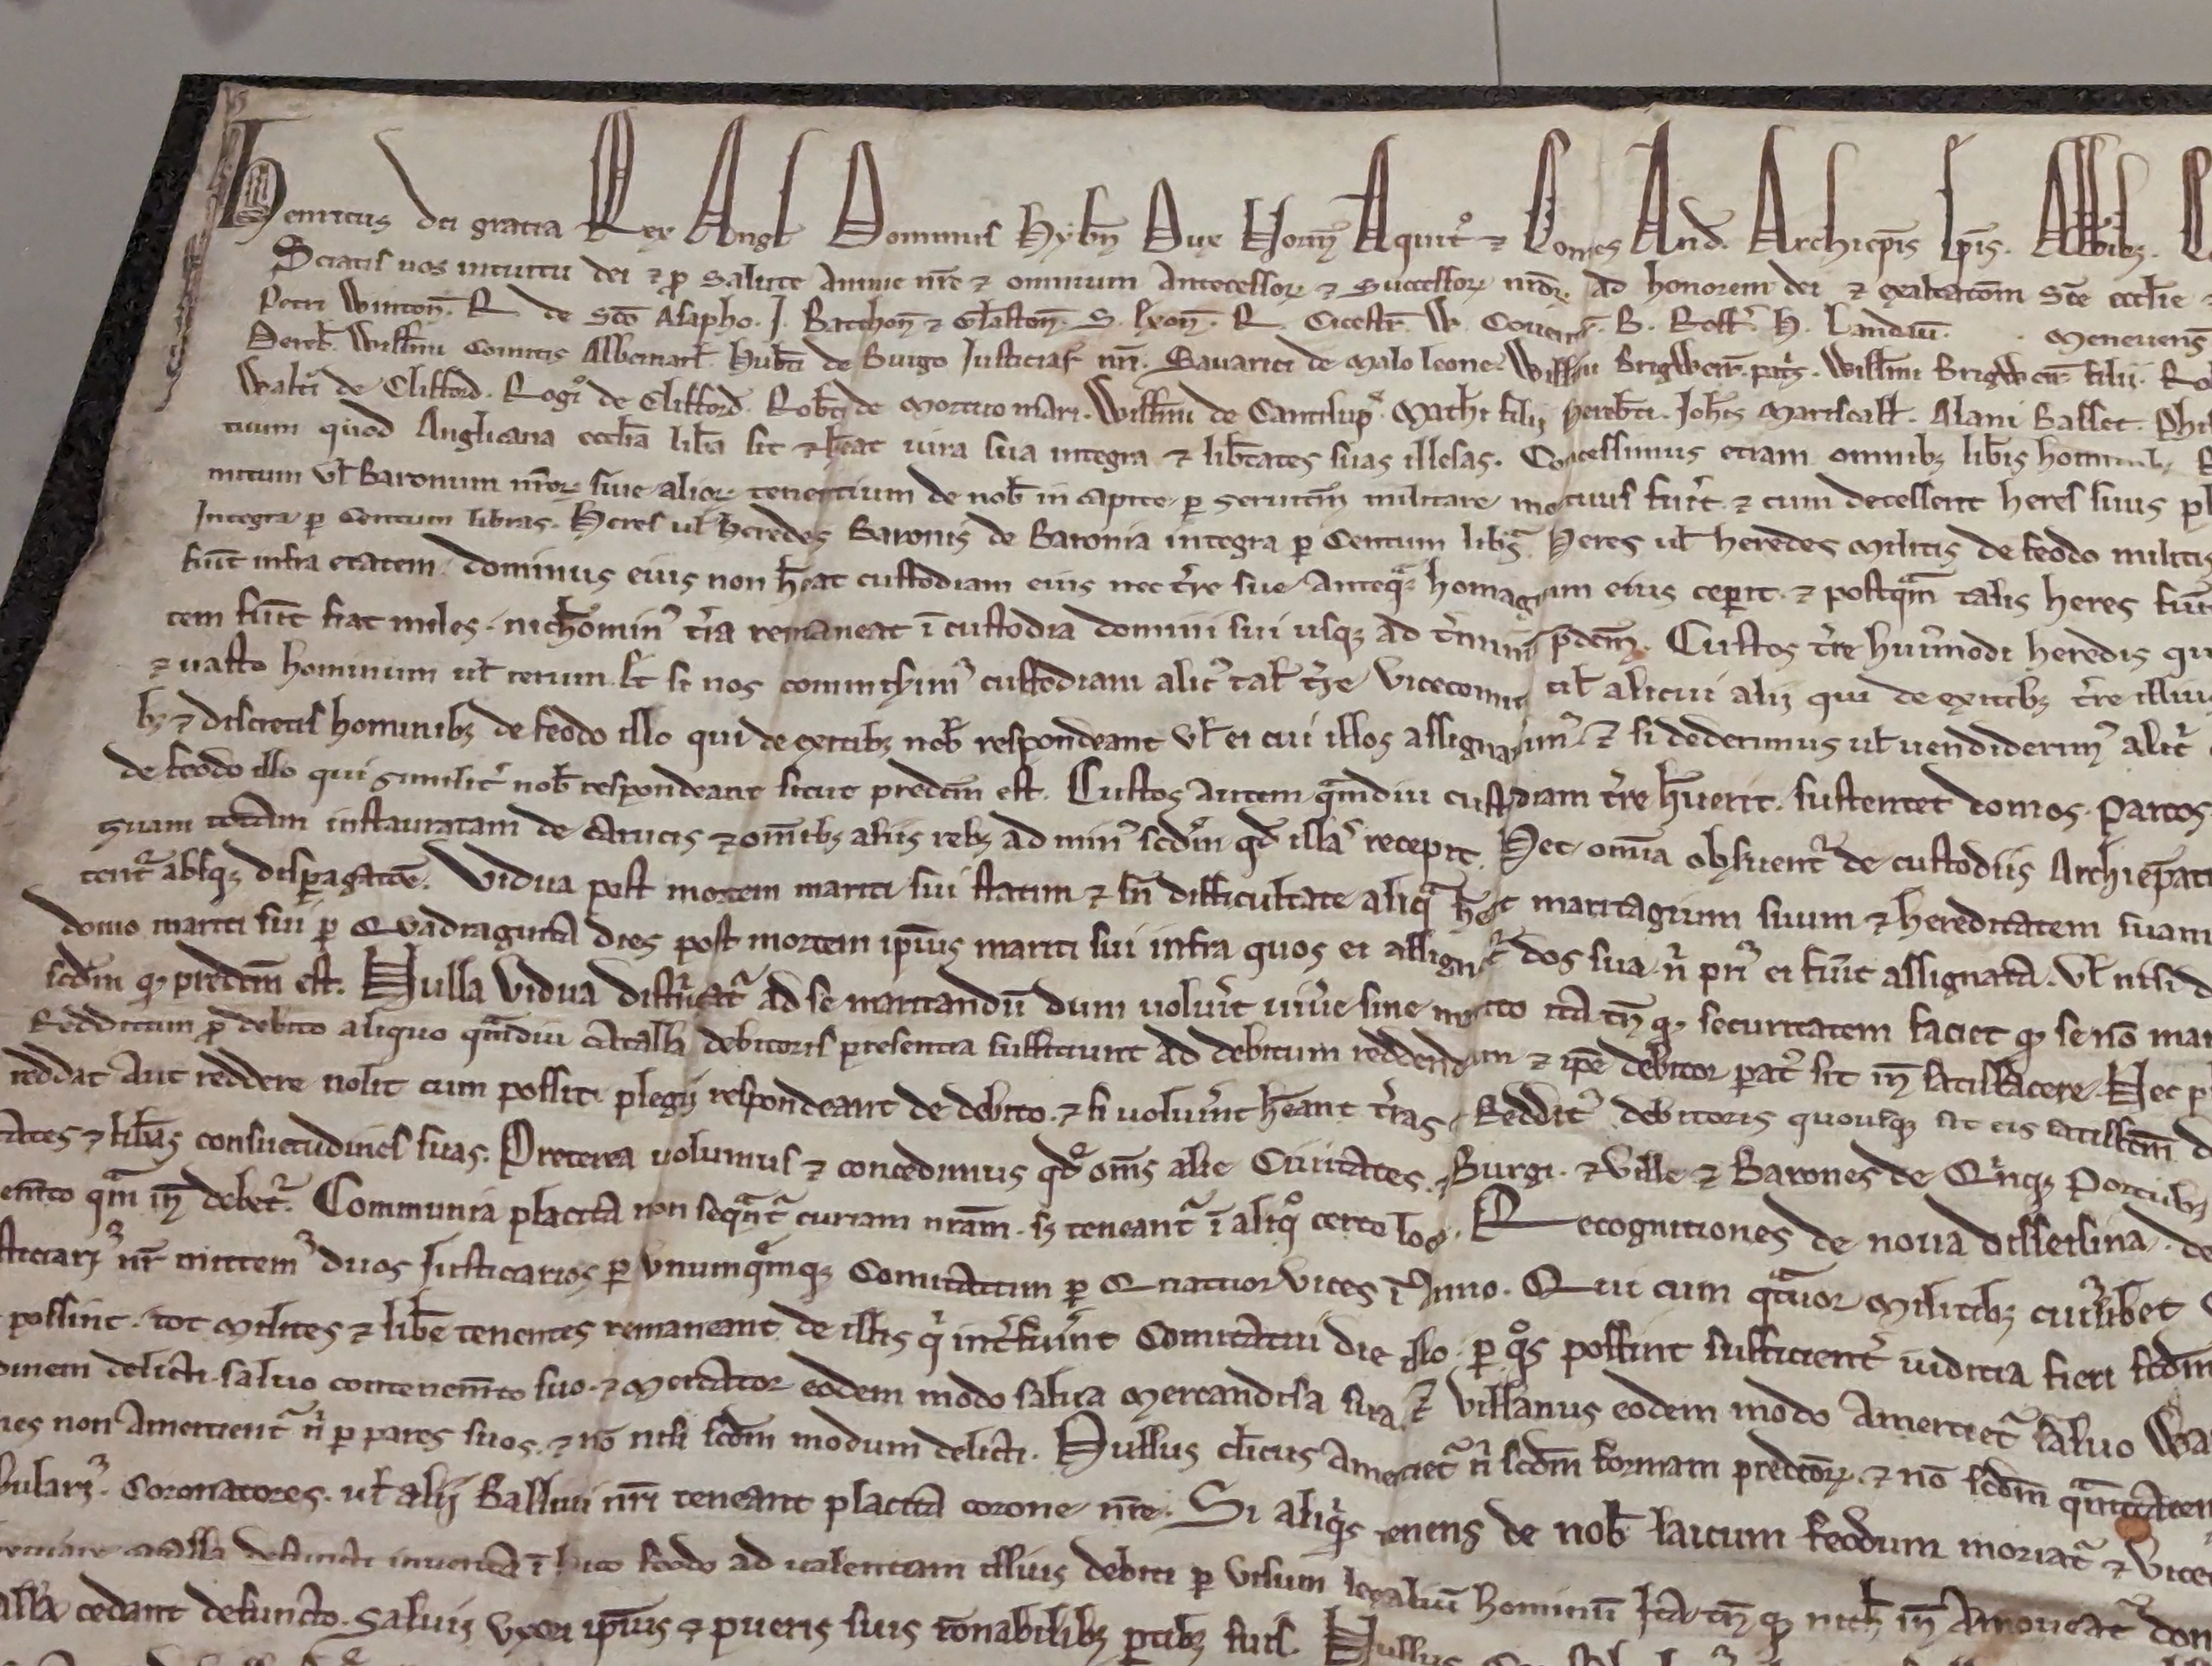 Henricus dei gratia Rex Angł Dominus Hybn̄ Dux Norm̄ Aquit⁊ Comes And. Archiep̄is Ep̄is. Abbib;.
Sciatis nos intuitu dei ⁊ p̱ Salute Anime nr̄e ⁊ omnium Antecessoꝝ ⁊ Successoꝝ nr̄oꝝ. Ad honorem dei ⁊ exaltatōm Sc̄e ecc̄lie
Petri Winton̄. R. de Sc̄o Asapho. J. Bathon̄ ⁊ Glaston̄. S. Exon̄. R. Cicestr̄. W. B. Roff. H. Landau̅. Meneuens̄
Dereb̄. Willm̄i Comitis Albemarł. Hub̄ti de Burgo Justiciar̄ nr̄i. Sauarici de Malo leone. Willm̄i Brigwerr̄. pat̄s. Willm̄i Brigwerr̄ filii. Ro
Walt̄i de Clifford. Roḡi de Clifford. Rob̄ti de Mortuo mari. Willm̄i de Cantilup̱. Math̄i filij hereb̄ti. Joh̄is Mariscalł. Alani Basset. Phi
tuum quod Anglicana ecc̄lia lib̄a sit ⁊ h̄eat iura sua integra ⁊ lib̄tates suas illesas. Concessimus etiam omnib; lib̄is hominib;
mitum uł Baronum nr̄oꝝ siue alioꝝ tenentium de nob̄ in capite p̱ seruitiū militare mortuus fu̅it ⁊ cum decesserit heres suus pl
Integra p̱ Centum libras. Heres uł heredes Baronis de Baronia integra p̱ Centum lib̄s. Heres uł heredes Militis de feodo militis
fu̅it infra etatem. dominus eius non h̄eat custodiam eius nec t̄re sue anteq̄ homagium eius cep̱it. ⁊ postq̄m talis heres fu̅it
tem fu̅it fiat miles. nichomin⁹ t̄ra remaneat ī custodia domini sui usq; ad t̄minū p̄dc̄m. Custos t̄re hui⁹modi heredis qu
⁊ uasto hominum uł rerum. Et si nos commiserim⁹ custodiam alic̄ tał t̄re Vicecomiti uł alicui alij qui de exitib; t̄re illiu
b; ⁊ discretis hominib; de feodo illo qui de exitib; nob̄ respondeant uł ei cui illos assignauim⁹. ⁊ si dederimus uł uendiderim⁹ alic̄
de feodo illo qui similit̄ nob̄ respondeant sicut predc̄m est. Custos autem q̄mdiu custodiam t̄re h̄uerit. sustentet domos. Parcos.
suam totam instauratam de carucis ⁊ om̄ib; aliis reb; ad min⁹ sc̄dm qd illā recepit. Hec om̄ia obs̄uent̄ de custodiis Archiep̄at
tent̄ absq; disp̱agatōe. Vidua post mortem mariti sui statim ⁊ sn̄ difficultate aliq̄ h̄eat maritagium suum ⁊ hereditatem suam
domo mariti sui p̱ Quadraginta dies post mortem ip̄ius mariti sui infra quos ei assignet̄ dos sua n̄ p̄⁹ ei fu̅it assignata. Uł nisi d
sc̄dm q̇ predc̄m est. Nulla Vidua dist̄ngat̄ ad se maritandū dum uolu̅it uiu̅e sine marito ita tn̄ q̇ securitatem faciet q̇ se nō mar
Redditum p̱ debito aliquo q̄mdiu catalla debitoris presentia sufficiunt ad debitum reddendum ⁊ ip̄e debitor parat⁹ sit in̄ satisfacere. Nec p
reddat Aut reddere nolit cum possit. plegij respondeant de debito. ⁊ si uolu̅int h̄eant t̄ras ⁊ Reddit⁹ debitoris quousq; sit eis satisfc̄m d
tates ⁊ lib̄as consuetudines suas. Preterea uolumus ⁊ concedimus qd om̄s alie Ciuitates. ⁊ Burgi. ⁊ Ville ⁊ Barones de Q̇nq; Portub;
en̄to q̄m in̄ debet̄. Communia placita non seq̄nt̄ curiam nr̄am. s; teneant̄ ī aliq̊ certo loco. Recognitiones de noua disseisina. de
sticiari⁹ nr̄ mittem⁹ duos Justiciarios p̱ Unumq̄mq; Comitatum p̱ Quatuor vices ī Anno. Qui cum q̄tuor Militib; cui⁹libet
possint. tot Milites ⁊ lib̄e tenentes remaneant de illis q̇ int̄fu̅int Comitatui die illo. p̱ q̊s possint sufficient̄ iudicia fieri sc̄dm
dinem delicti. saluo contenem̄to suo. ⁊ Mercator eodem modo salua Mercandisa sua. ⁊ Villanus eodem modo Amerciet̄ saluo Wa
nes non Amercient̄ n̄ p̱ pares suos. ⁊ nō nisi sc̄dm modum delicti. Nullus cl̄icus Amerciet̄ n̄ sc̄dm formam predc̄oꝝ. ⁊ nō sc̄dm q̄ntitatem
bulari⁹. Coronatores. uł alij Balliui nr̄i teneant placita corone nr̄e. Si aliq̇s tenens de nob̄ laicum feodum moriat̄ ⁊ Vice
catalla defuncti inuenta ī laico feodo ad ualentiam illius debiti p̱ Visum legaliū hominū Ita tn̄ q̇ nich̄ in̄ Amoueat̄ don
alla cedant defuncto. Saluis Uxori ip̄ius ⁊ pueris suis rōnabilib; p̱tib; suis. Nullus